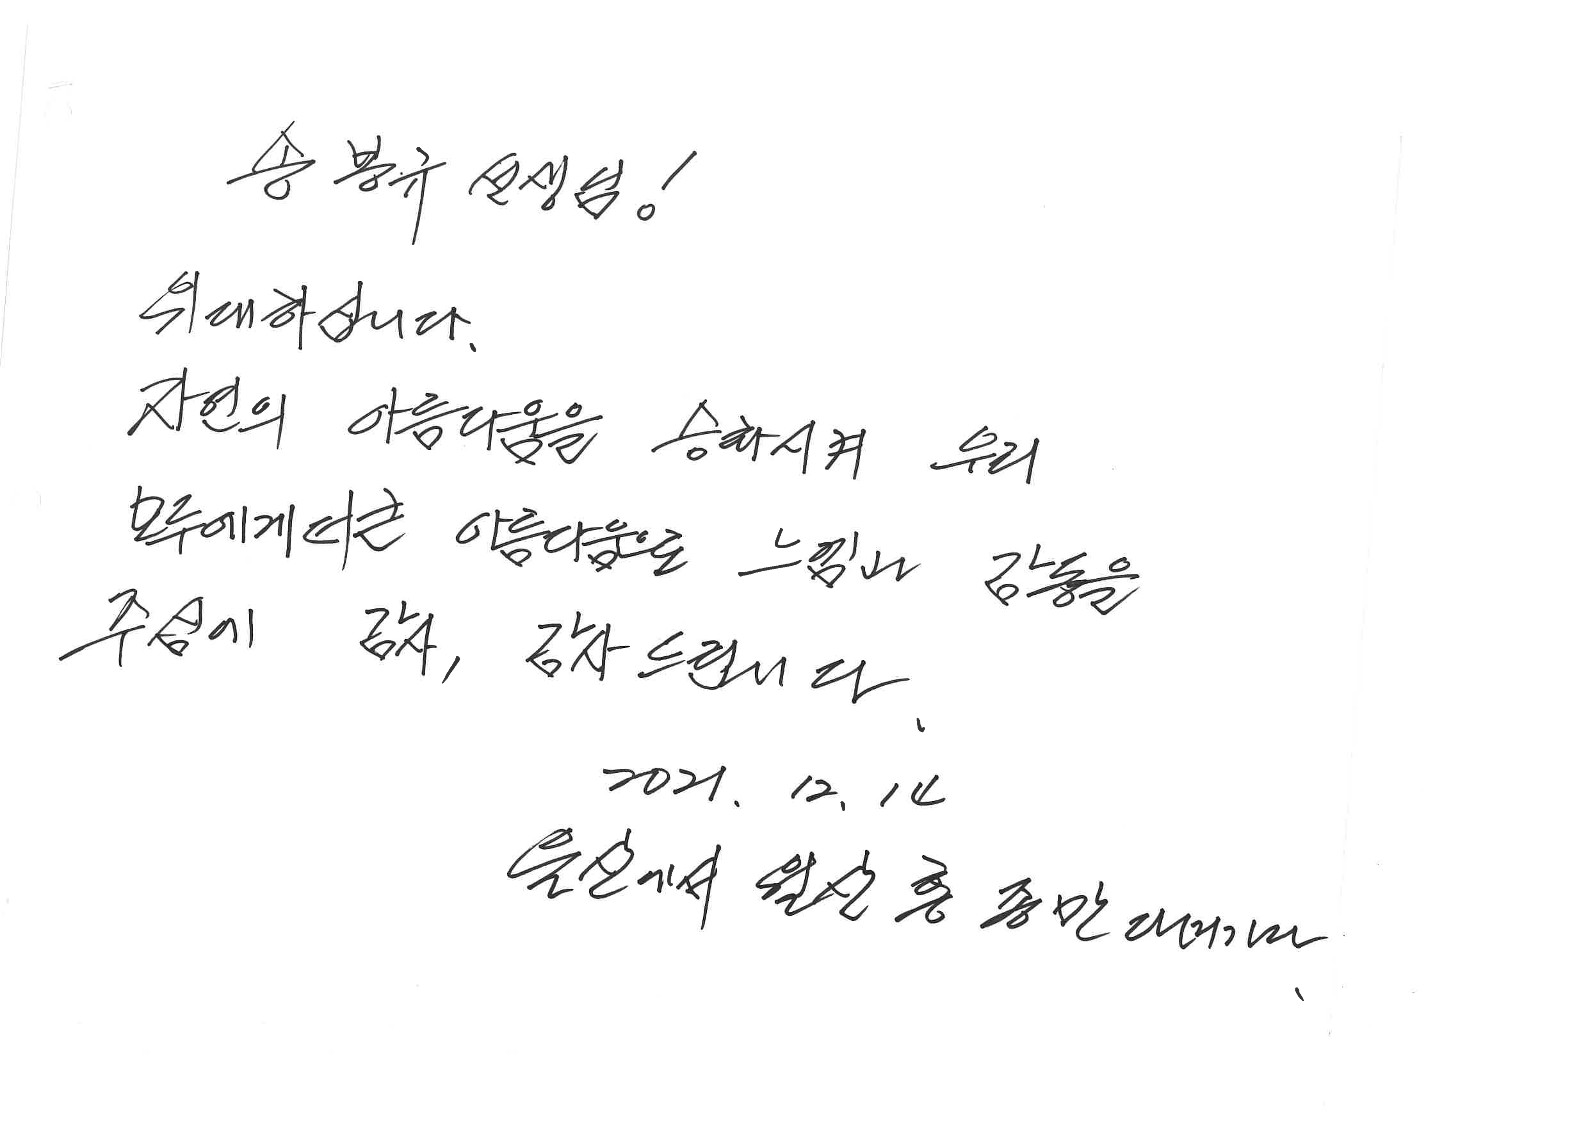 송봉규 선생님!
위대하십니다.
자연의 아름다움을 승화시켜 우리
모두에게 더큰 아름다움으로 느낌과 감동을
주심에 감사, 감사드립니다.
2021. 12. 14
울산에서 월산 홍종만